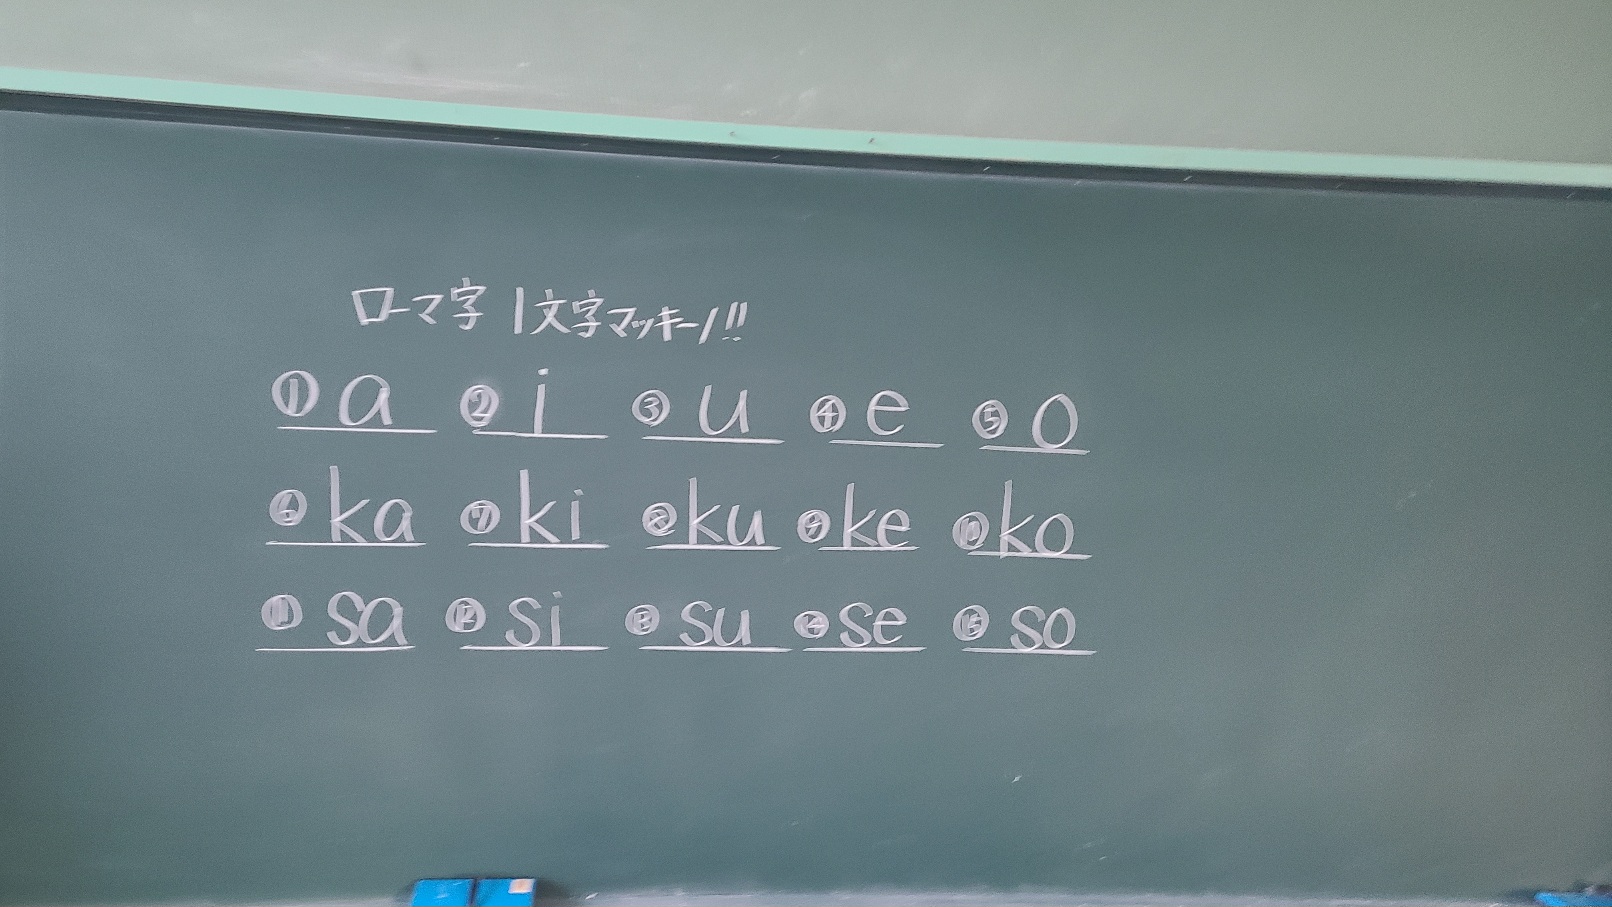 ローマ字 1文字マッキーノ!!
① a ② i ③ u ④ e ⑤ o
⑥ ka ⑦ ki ⑧ ku ⑨ ke ⑩ ko
⑪ sa ⑫ si ⑬ su ⑭ se ⑮ so